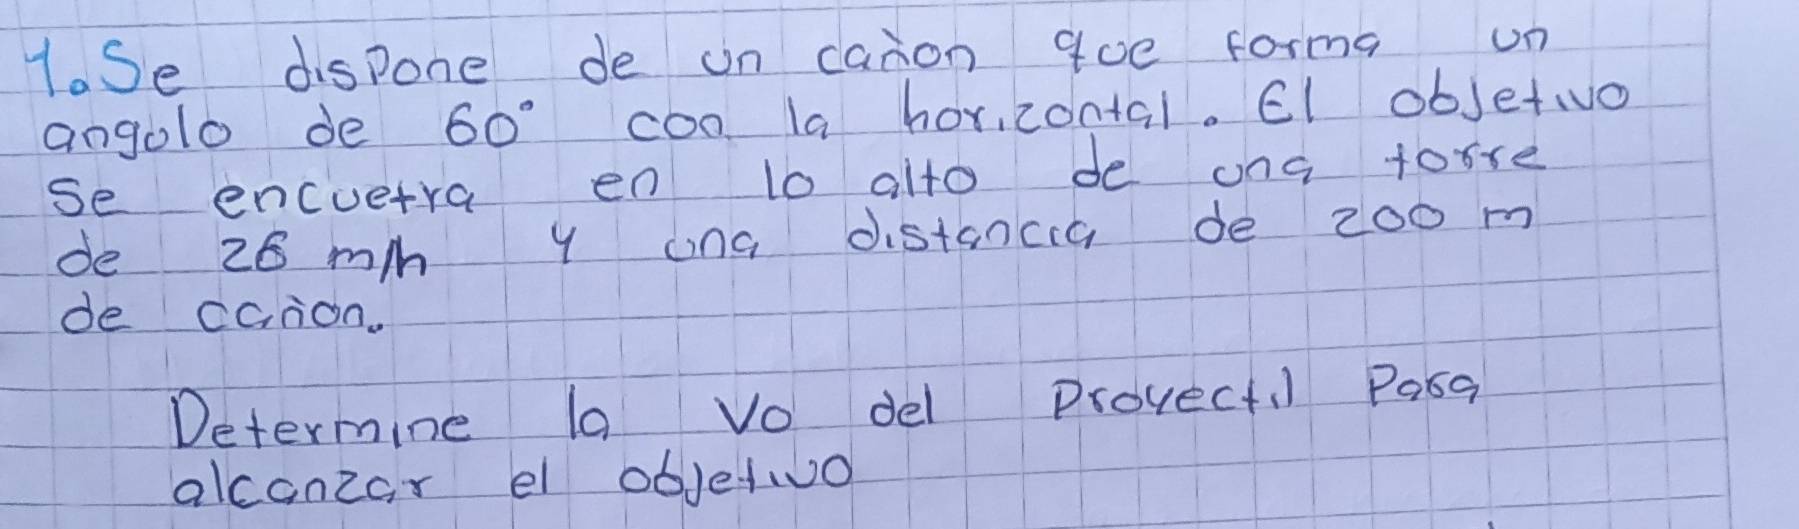 1. Se dispone de un cañon que forma un
angulo de 60° con la horizontal. El objetivo
se encuetra en lo alto de una torre
de 26 m/h y una distancia de 200 m
de cañon.
Determine la Vo del Proyectil Para
alcanzar el objetivo